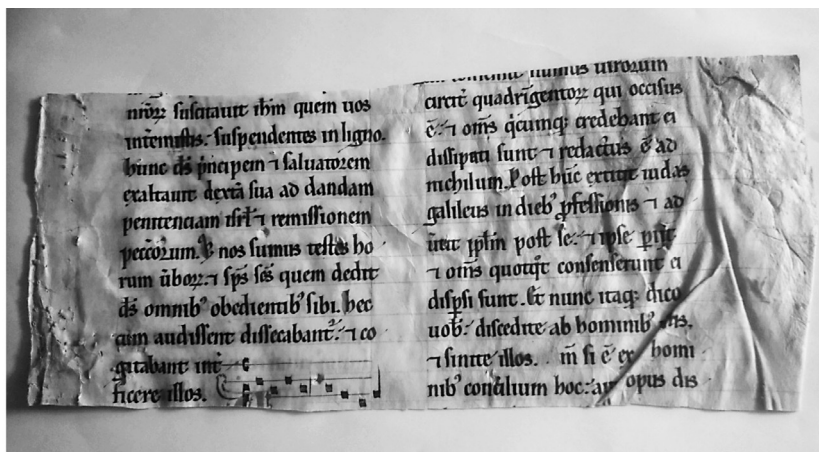 nr̄oꝝ suscitauit ih̄m quem uos
int̄emistis: suspendentes in ligno.
hunc d̄s p̍ncipem ⁊ saluatorem
exaltauit dext̄a sua ad dandam
penitenciam isrl̄ ⁊ remissionem
pecc̄orum. nos sumus testes ho
rum ūboꝝ: ⁊ sp̄s sc̄s quem dedit
d̄s omnibꝰ obedientibꝰ sibi. hec
cum audissent dissecabant᷑: ⁊ co
gitabant int̄
ficere illos.
uirorum
circit̄ quadrīgentoꝝ qui occisus
ē: ⁊ om̄s q̍cumqꝫ credebant ei
dissipati sunt ⁊ redactus ē ad
nichilum. Post hūc extitit iudas
galileus in diebꝰ ꝓfessionis ⁊ ad
ūtit ipl̄m post se: ⁊ ipse
⁊ om̄s quotqͦt consenserunt ei
disꝑsi sunt. Et nunc itaqꝫ dico
uob̄: discedite ab hominibꝰ
⁊ sinite illos. m̄ si ē ex homi
nibꝰ conꞇilium hoc: opus dis